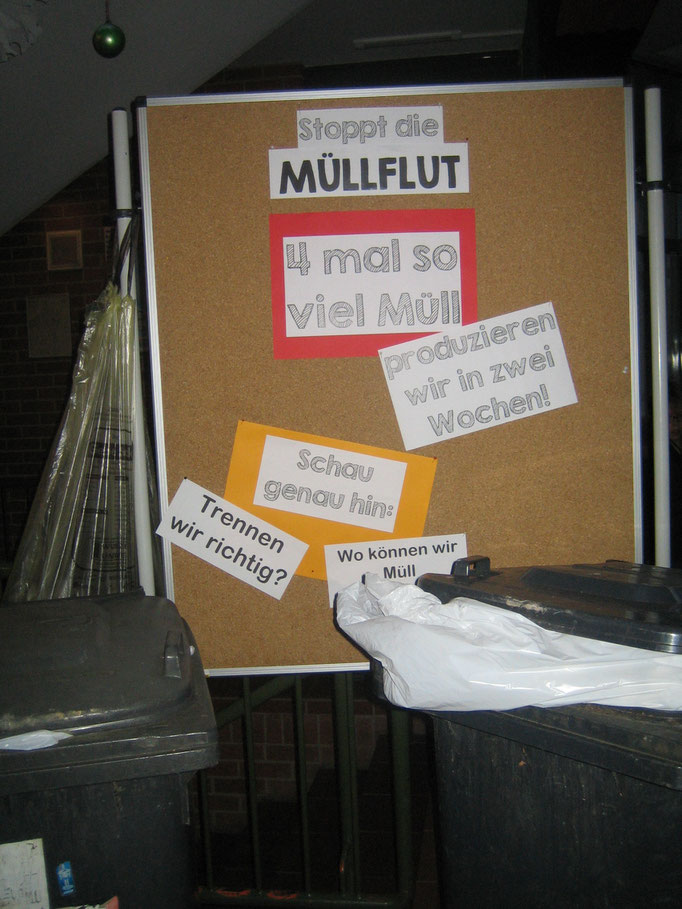 Stoppt die
MÜLLFLUT
4 mal so
viel Müll
produzieren
wir in zwei
Wochen!
Schau
genau hin:
Trennen
wir richtig?
Wo können wir
Müll